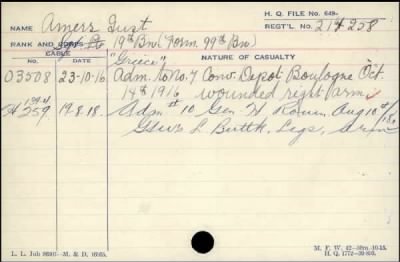 NAME Amers Gust
H. Q. FILE No. 649-
REGT'L No. 214258
RANK AND CORPS Pte 19th Bn (Form. 99th Bn)
CABLE
No. DATE "Greece" NATURE OF CASUALTY
03508 23-10-16 Adm. to No. 7 Conv. Depot Boulogne Oct.
14th 1916 wounded right arm.
H 259 17-8-18. Adm # 10 Gen. H Rouen Aug 10th/18
Gsws L Buttk. Legs, arm
L. L. Job 86801—M. & D. 16605.
M. F. W. 42—50m.-10-15.
H. Q. 1772—39-800.